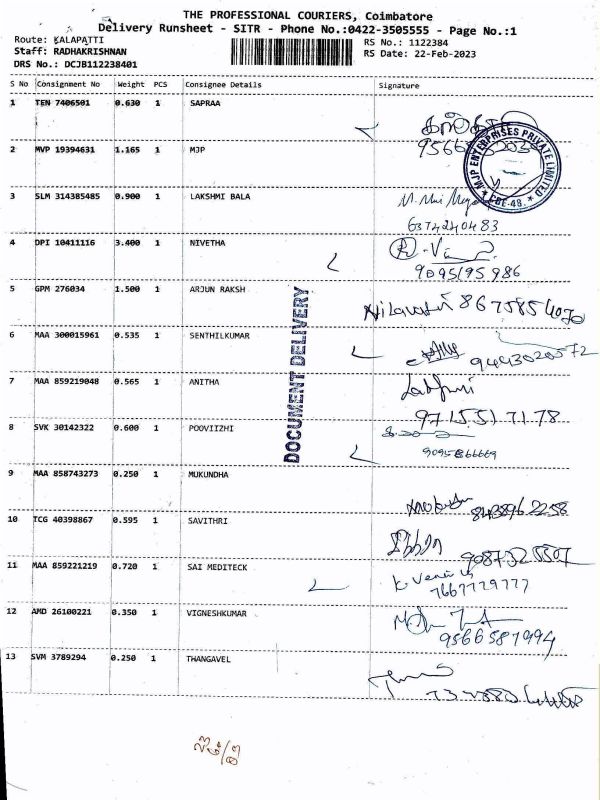 THE PROFESSIONAL COURIERS, Coimbatore
Delivery Runsheet - SITR - Phone No.:0422-3505555 - Page No.:1
Route: KALAPATTI
Staff: RADHAKRISHNAN
DRS No.: DCJB112238401
RS No.: 1122384
RS Date: 22-Feb-2023
S No Consignment No Weight PCS Consignee Details Signature
1 TEN 7406501 0.630 1 SAPRAA
2 MVP 19394631 1.165 1 MJP
MJP ENTERPRISES PRIVATE LIMITED
CBE-48.
3 SLM 314385485 0.900 1 LAKSHMI BALA
6374240483
4 DPI 10411116 3.400 1 NIVETHA
9095195986
5 GPM 276034 1.500 1 ARJUN RAKSH
DOCUMENT DELIVERY
6 MAA 300015961 0.535 1 SENTHILKUMAR
9443020572
7 MAA 859219048 0.565 1 ANITHA
9715517178
8 SVK 30142322 0.600 1 POOVIIZHI
9 MAA 858743273 0.250 1 MUKUNDHA
10 TCG 40398867 0.595 1 SAVITHRI
11 MAA 859221219 0.720 1 SAI MEDITECK
7667779777
12 AMD 26100221 0.350 1 VIGNESHKUMAR
9566587994
13 SVM 3789294 0.250 1 THANGAVEL